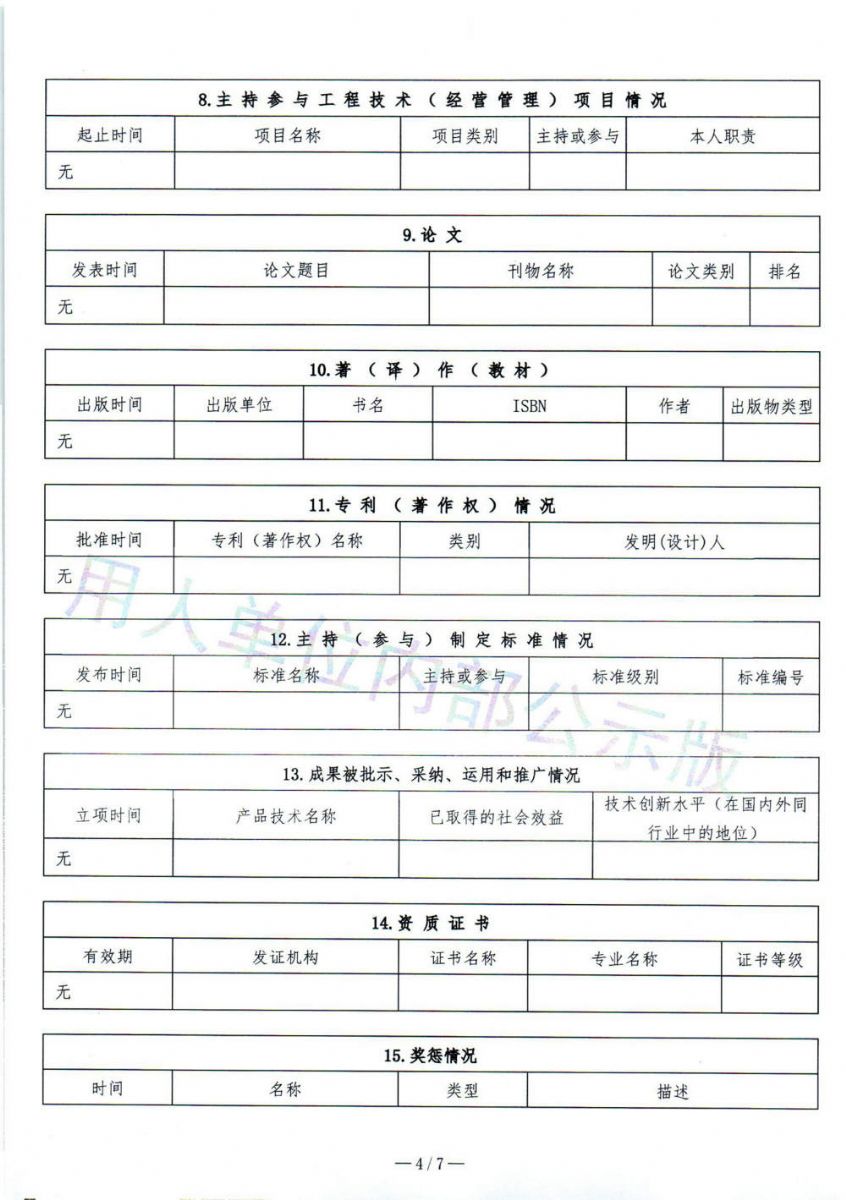 8.主持参与工程技术（经营管理）项目情况
起止时间 项目名称 项目类别 主持或参与 本人职责
无
9.论文
发表时间 论文题目 刊物名称 论文类别 排名
无
10.著（译）作（教材）
出版时间 出版单位 书名 ISBN 作者 出版物类型
无
11.专利（著作权）情况
批准时间 专利（著作权）名称 类别 发明(设计)人
无
用人单位内部公示版
12.主持（参与）制定标准情况
发布时间 标准名称 主持或参与 标准级别 标准编号
无
13.成果被批示、采纳、运用和推广情况
立项时间 产品技术名称 已取得的社会效益 技术创新水平（在国内外同
行业中的地位）
无
14.资质证书
有效期 发证机构 证书名称 专业名称 证书等级
无
15.奖惩情况
时间 名称 类型 描述
—4/7—